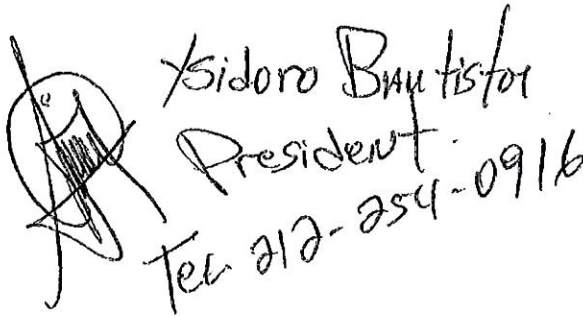 Ysidoro Bautista
President.
Tel. 212-254-0916